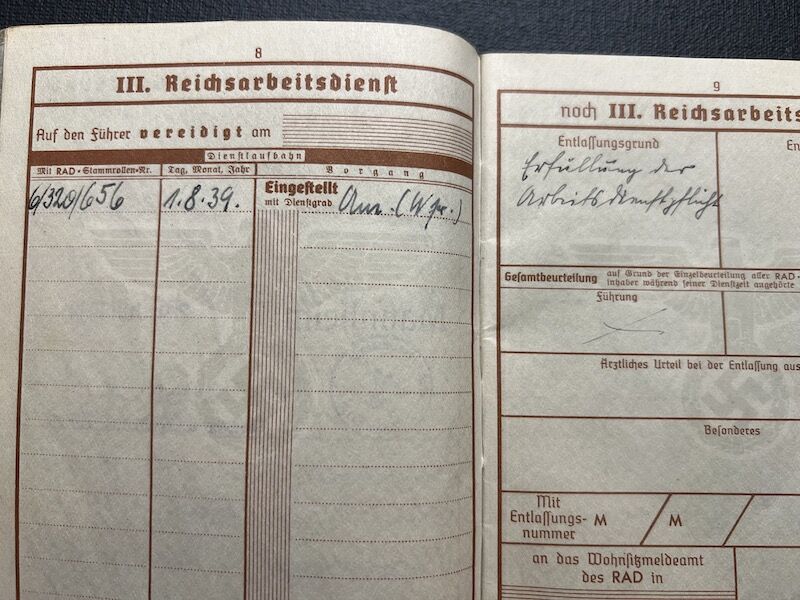 8
III. Reichsarbeitsdienst
Auf den Führer vereidigt am
Dienstlaufbahn
Mit RAD-Stammrollen-Nr. Tag, Monat, Jahr Vorgang
6/320/656 1.8.39. Eingestellt
mit Dienstgrad
9
noch III. Reichsarbeits
Entlassungsgrund
Erfüllung der
Arbeitsdienstpflicht
Gesamtbeurteilung auf Grund der Einzelbeurteilung aller RAD-
inhaber während seiner Dienstzeit angehörte
Führung
Ärztliches Urteil bei der Entlassung aus
Besonderes
Mit
Entlassungs-
nummer M / M /
an das Wohnsitzmeldeamt
des RAD in